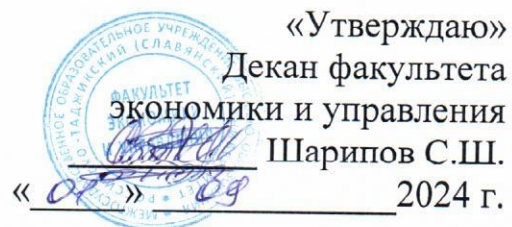 «Утверждаю»
Декан факультета
экономики и управления
Шарипов С.Ш.
« 01 » 09 2024 г.
ФАКУЛЬТЕТ